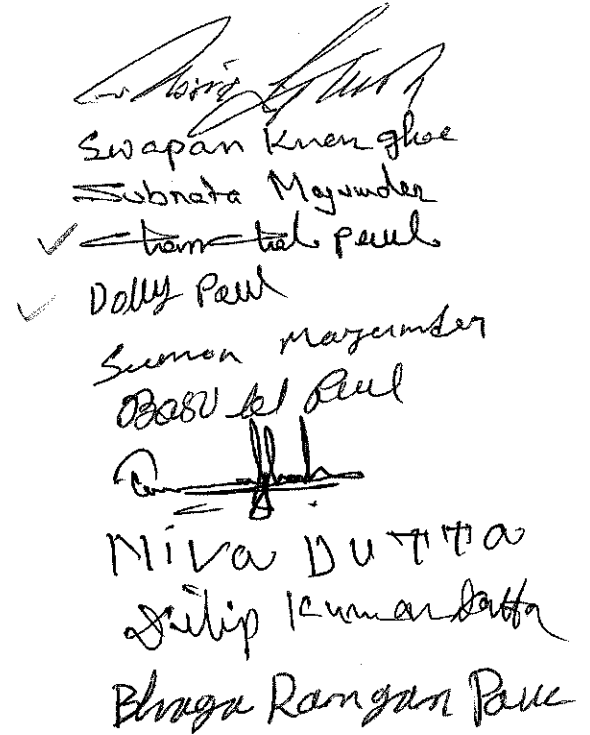 Swapan Kumar ghose
Subrata Majumder
Chanchal paul
Dolly Paul
Suman Majumder
Basu del Paul
Niva DUTTA
Dilip Kumar Datta
Bhaga Rangan Paul